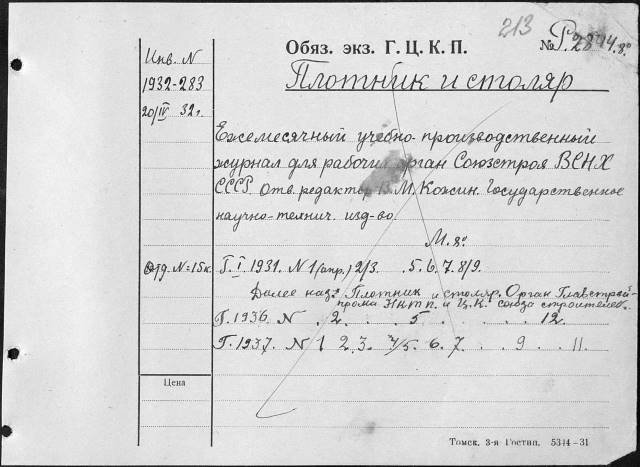 213
Обяз. экз. Г. Ц. К. П.
№ Р.2844.8°
Инв. N
1932-283
20/IV 32 г.
Плотник и столяр
Ежемесячный учебно-производственный
журнал для рабочих орган Союзстроя ВСНХ
СССР Отв. редактор В.М. Кожин. Государственное
научно-технич. изд-во.
М. 8°
Отд. N=15к.
Г. I. 1931. N 1 (апр.) 2/3. . 5. 6. 7. 8/9.
Далее назв. Плотник и столяр. Орган Главстрой-
прома НКТП и Ц.К. союза строителей.
Г. 1936. N . 2 . . 5 . . . . . . 12.
Г. 1937. N 1 2. 3. 4/5. 6. 7. . 9 . 11.
Цена
Томск. 3-я Гостип. 5344-31